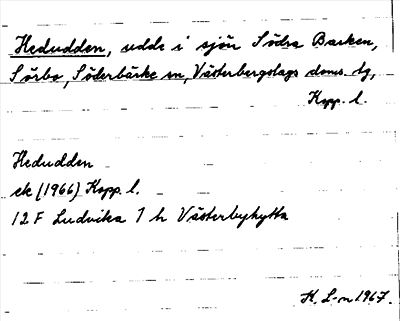 Hedudden, udde i sjön Södra Barken,
Sörbo, Söderbärke sn, Västerbergslags doms. dg,
Kopp. l.
Hedudden
ek (1966) Kopp. l.
12 F Ludvika 7 h Västerbyhytta
K. L-n 1967.